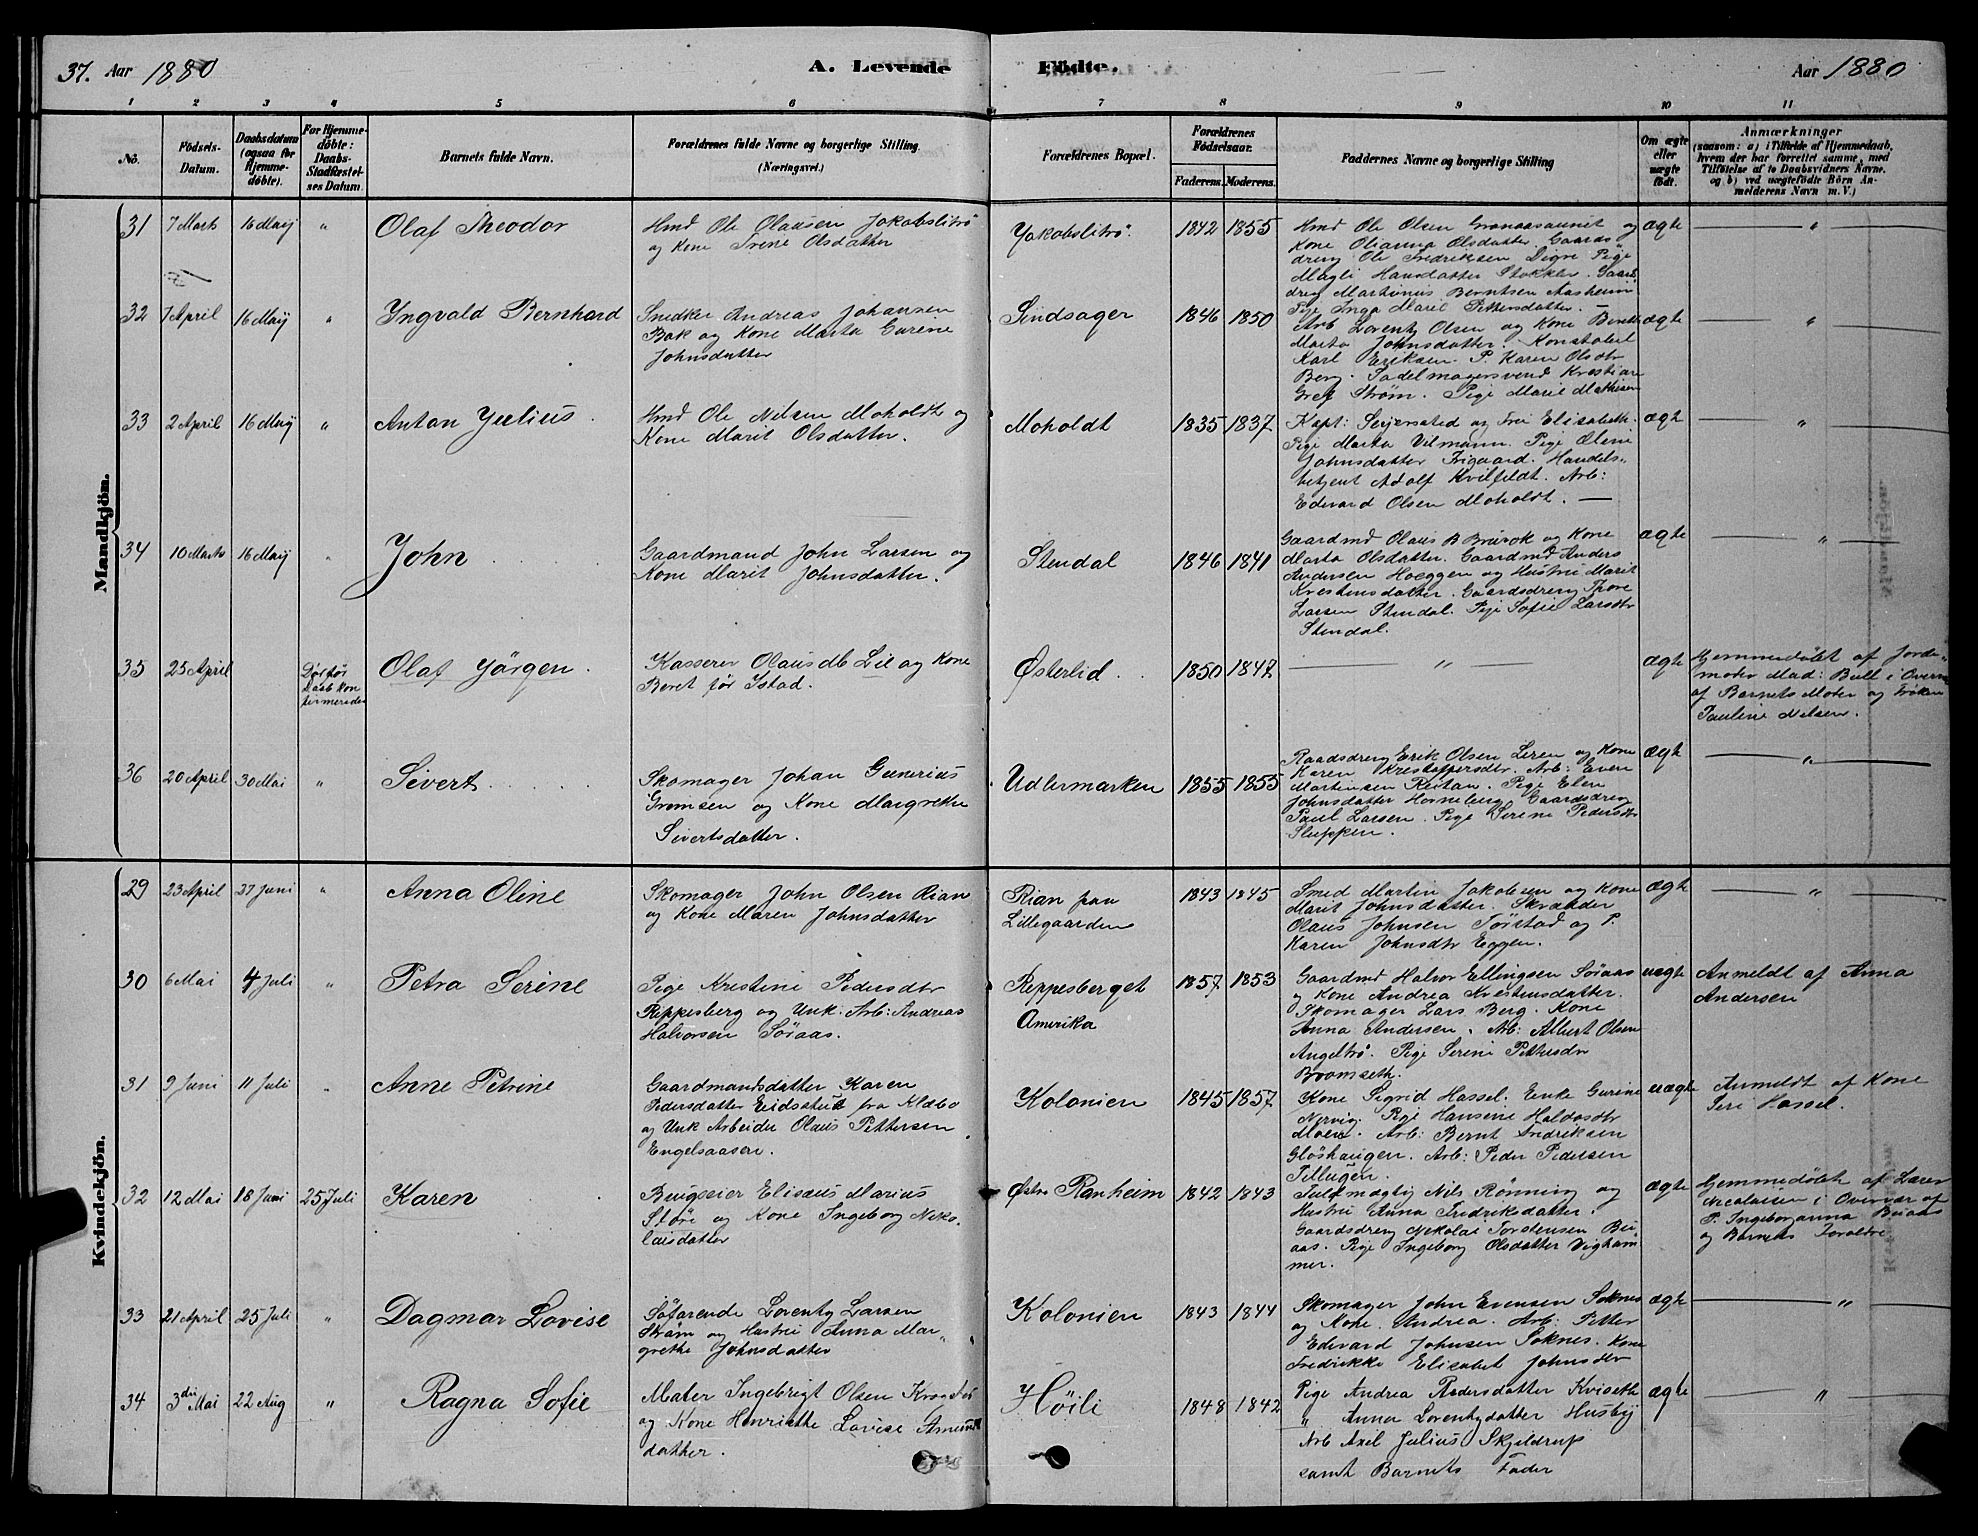 37. Aar 1880
A. Levende
Födte.
Aar 1880
1 2 3 4 5 6 7 8 9 10 11
No.
Födsels-
Datum.
Daabsdatum
(ogsaa for
Hjemme-
döbte).
For Hjemme-
döbte:
Daabs-
Stadfæstel-
ses Datum.
Barnets fulde Navn.
Forældrenes fulde Navne og borgerlige Stilling
(Næringsvei.)
Forældrenes Bopæl.
Forældrenes
Födselsaar.
Faderens. Moderens.
Faddernes Navne og borgerlige Stilling
Om ægte
eller
uægte
födt.
Anmærkninger
(saasom: a) i Tilfælde af Hjemmedaab,
hvem der har forrettet samme, med
Tilföielse af to Daabsvidners Navne.
og b) ved uægtefödte Börn An-
melderens Navn m. V.)
Mandkjön.
31 7 Marts 16 Maij " Olaf Theodor
Hmd Ole Olausen Jakobslitrø
og Kone Irene Olsdatter
Jakobslitrø. 1842 1855
Hmd Ole Olsen Granaasaunet og
Kone Olianna Olsdatter. Gaards
dreng Ole Fredriksen Digre Pige
Magli Hansdatter Stokken. Gaards
dreng Martinus Berntsen Aasheim
Pige Inga Marie Pettersdatter. —
ægte "
32 7 April 16 Maij " Yngvald Bernhard
Snedker Andreas Johansen
Bak og Kone Marta Gurine
Johnsdatter
Sindsager 1846 1850
Arb Lorentz Olsen og Kone Berethe
Marta Johnsdatter. Konstabel
Karl Eriksen. P. Karen Olsdtr
Berg. Sadelmagersvend Kristian
Greg Strøm. Pige Marie Mathisen
ægte "
33 2 April 16 Maij " Anton Julius.
Hmd Ole Nilsen Moholdt og
Kone Marit Olsdatter.
Moholdt 1835 1837
Kapt: Seyersted og Frue Elisabeth.
Pige Marta Vilmann. Pige Oline
Johnsdatter Frigaard. Handels-
betjent Adolf Kvilfeldt. Arb:
Edvard Olsen Moholdt. —
ægte "
34 10 Marts 16 Maij " John
Gaardmand John Larsen og
Kone Marit Johnsdatter.
Stendal 1846 1841
Gaardmd Olaus B Brurok og Kone
Marta Olsdatter. Gaardmd Anders
Andersen Hoeggen og Hustru Marit
Kristensdatter. Gaardsdreng Thore
Larsen Stendal. Pige Sofie Larsdtr
Stendal.
ægte "
35 25 April
Død før
Daab kon
firmeredes
Olaf Jörgen.
Kasserer Olaus M Lie og Kone
Beret før Istad.
Østerlid 1850 1847 " ægte
Hjemmedøbt af Jorde-
moder Mad: Bull i Overvær
af Barnets Moder og Frøken
Pauline Nilsen.
36 20 April 30 Mai " Sivert
Skomager Johan Gunerius
Gromsen og Kone Margrethe
Sivertsdatter.
Udlermarken 1855 1855
Erik Olsen Leren og Kone
Karen Kristoffersdtr. Arb: Even
Martinsen Reitan. Pige Elen
Johnsdatter Horneberg. Gaardsdreng
Paul Larsen. Pige Serine Pedersdtr
Sluppen.
ægte "
Kvindekjön.
29 23 April 27 Juni " Anna Oline
Skomager John Olsen Rian
og Kone Maren Johnsdatter
Rian paa
Lillegaarden
1843 1845
Smed Martin Jakobsen og Kone
Marit Johnsdatter. Skrædder
Olaus Johnsen Törstad og P.
Karen Johnsdtr Eggen.
ægte "
30 6 Mai 4 Juli " Petra Serine
Pige Kristine Pedersdtr
Reppesberg og Unk. Arb: Andreas
Halvorsen Søraas.
Reppesberget
Amerika
1857 1853
Gaardmd Halvor Ellingsen Søraas
og Kone Andrea Kristensdatter.
Skomager Lars Berg. Kone
Anna Andersen. Arb: Albert Olsen
Angeltrø. Pige Serine Pettersdtr
Bromseth.
uægte
Anmeldt af Anna
Andersen
31 9 Juni 11 Juli " Anne Petrine
Gaardmandsdatter Karen
Pedersdatter Eidsstue fra Klæbo
og Unk Arbeider Olaus Pettersen
Engelsaasen.
Kolonien 1845 1857
Kone Sigrid Hassel. Enke Gurine
Nervig. Pige Hansine Haldosdtr
Moen. Arb: Bernt Fredriksen
Gløshaugen. Arb: Peder Pedersen
Tillugen.
uægte
Anmeldt af Kone
Seri Hassel.
32 12 Mai 18 Juni 25 Juli Karen
Brugseier Elisæus Marius
Støre og Kone Ingeborg Niko-
laisdatter
Østre Ranheim 1842 1843
Fuldmægtig Nils Rönning og
Hustru Anna Fredriksdatter.
Gaardsdreng Nikolai Torstensen Bu
aas. Pige Ingeborg Olsdatter Vigham
mer.
ægte
Hjemmedøbt af Lærer
Nicolaisen i Overvær af
P. Ingeboranna Buaas
og Barnets Forældre
33 21 April 25 Juli " Dagmar Lovise
Söfarende Lorentz Larsen
Strøm og Hustru Anna Mar-
grethe Johnsdatter
Kolonien 1843 1844
Skomager John Evensen Soknes
og Kone Andrea. Arb: Petter
Edvard Johnsen Soknes. Kone
Fredrikke Elisabet Johnsdtr
ægte "
34 3die Mai 22 Aug " Ragna Sofie
Maler Ingebrigt Olsen
og Kone Henriette Lovise
datter.
Höili 1848 1842
Pige Andrea Pedersdatter Kviseth
" Anna Lorentzdatter Husbij
Arb Axel Julius Skjeldrup
samt Barnets Fader
ægte "